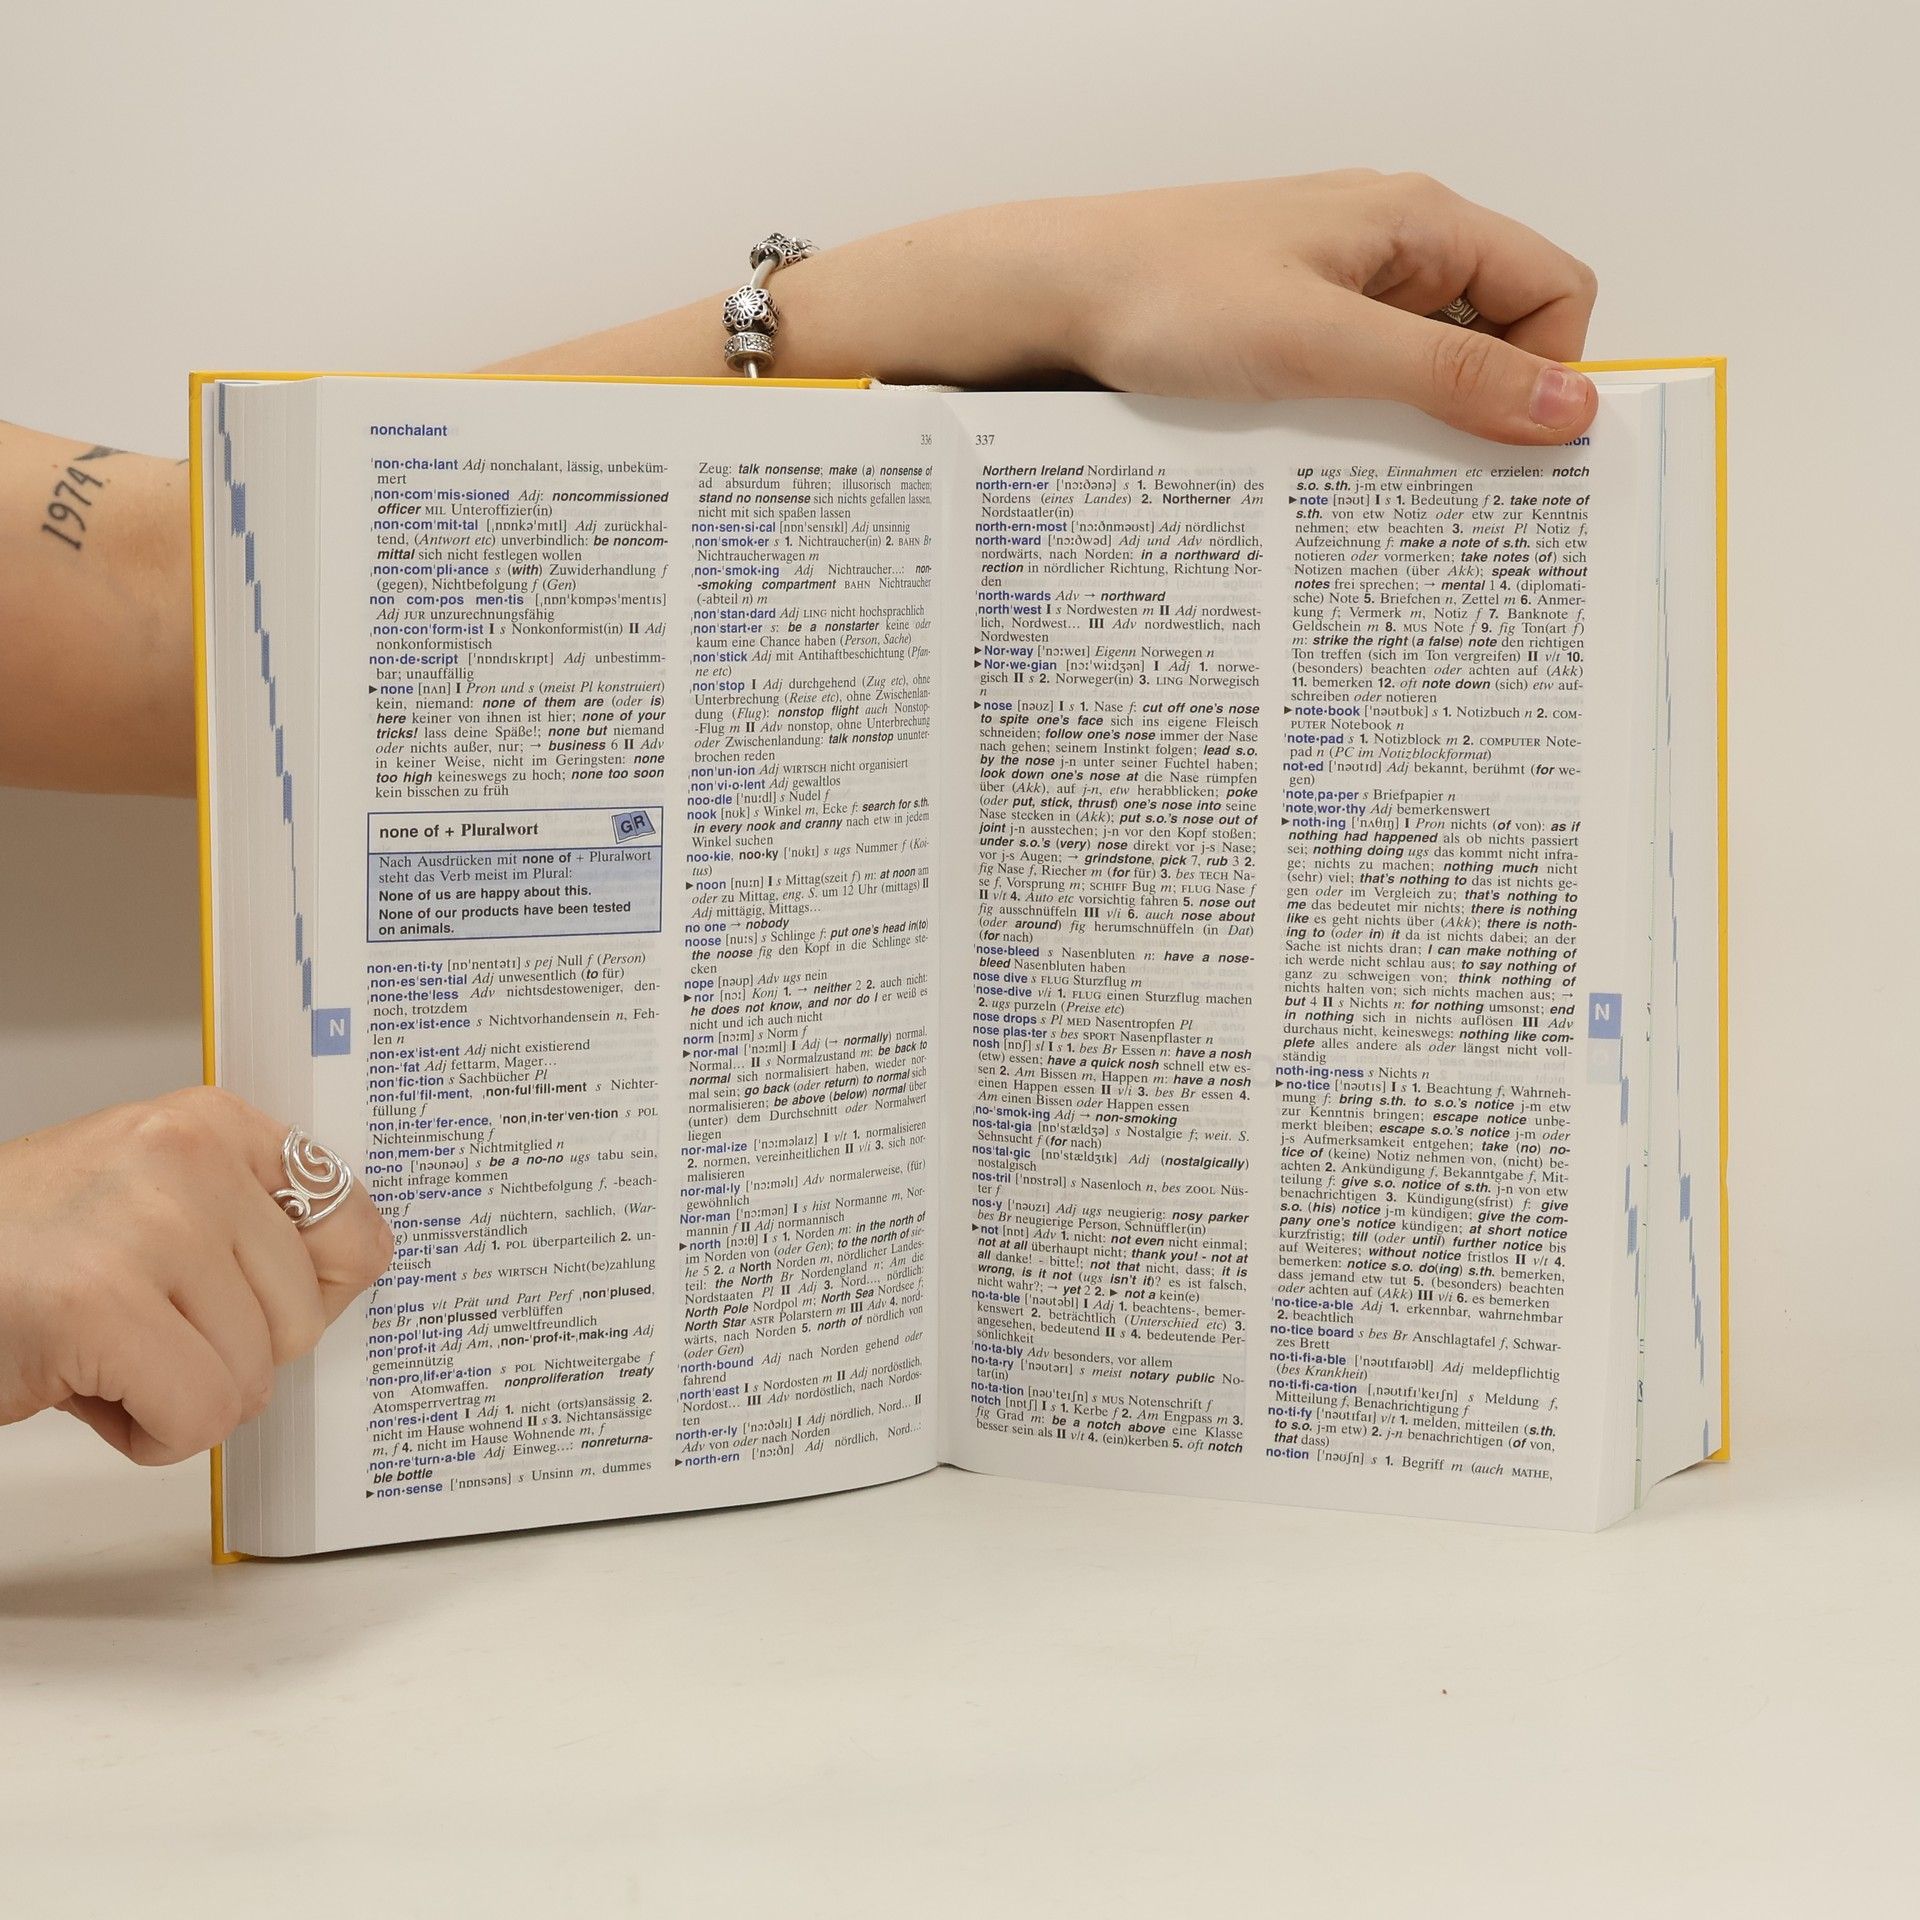 1974
nonchalant
336
ˈnon•cha•lant Adj nonchalant, lässig, unbeküm-
mert
ˌnon•comˈmis•sioned Adj: noncommissioned
officer MIL Unteroffizier(in)
ˌnon•comˈmit•tal [ˌnɒnkəˈmɪtl] Adj zurückhal-
tend, (Antwort etc) unverbindlich: be noncom-
mittal sich nicht festlegen wollen
ˌnon•comˈpli•ance s (with) Zuwiderhandlung f
(gegen), Nichtbefolgung f (Gen)
non com•pos men•tis [ˌnɒnˈkɒmpəsˈmentɪs]
Adj JUR unzurechnungsfähig
ˌnon•conˈform•ist I s Nonkonformist(in) II Adj
nonkonformistisch
non•de•script [ˈnɒndɪskrɪpt] Adj unbestimm-
bar; unauffällig
▶none [nʌn] I Pron und s (meist Pl konstruiert)
kein, niemand: none of them are (oder is)
here keiner von ihnen ist hier; none of your
tricks! lass deine Späße!; none but niemand
oder nichts außer, nur; → business 6 II Adv
in keiner Weise, nicht im Geringsten: none
too high keineswegs zu hoch; none too soon
kein bisschen zu früh
none of + Pluralwort GR
Nach Ausdrücken mit none of + Pluralwort
steht das Verb meist im Plural:
None of us are happy about this.
None of our products have been tested
on animals.
non•en•ti•ty [nɒˈnentətɪ] s pej Null f (Person)
ˌnon•esˈsen•tial Adj unwesentlich (to für)
ˌnone•theˈless Adv nichtsdestoweniger, den-
noch, trotzdem
ˌnon•exˈist•ence s Nichtvorhandensein n, Feh-
len n
ˌnon•exˈist•ent Adj nicht existierend
ˌnon-ˈfat Adj fettarm, Mager…
ˌnonˈfic•tion s Sachbücher Pl
ˌnon•fulˈfil•ment, ˌnon•fulˈfill•ment s Nichter-
füllung f
ˈnonˌin•terˈfer•ence, ˈnonˌin•terˈven•tion s POL
Nichteinmischung f
ˌnonˈmem•ber s Nichtmitglied n
no-no [ˈnəʊnəʊ] s be a no-no ugs tabu sein,
nicht infrage kommen
ˌnon•obˈserv•ance s Nichtbefolgung f, -beach-
ung f
ˈnon•sense Adj nüchtern, sachlich, (War-
g) unmissverständlich
par•tiˈsan Adj 1. POL überparteilich 2. un-
rteiisch
onˈpay•ment s bes WIRTSCH Nicht(be)zahlung
f
ˌnonˈplus v/t Prät und Part Perf ˌnonˈplused,
bes Br ˌnonˈplussed verblüffen
ˌnon•polˈlut•ing Adj umweltfreundlich
ˌnonˈprof•it Adj Am, ˌnon-ˈprof•it-ˌmak•ing Adj
gemeinnützig
ˈnon•proˌlif•erˈa•tion s POL Nichtweitergabe f
von Atomwaffen. nonproliferation treaty
Atomsperrvertrag m
ˌnonˈres•i•dent I Adj 1. nicht (orts)ansässig 2.
nicht im Hause wohnend II s 3. Nichtansässige
m, f 4. nicht im Hause Wohnende m, f
ˌnon•reˈturn•a•ble Adj Einweg…: nonreturna-
ble bottle
▶non•sense [ˈnɒnsəns] s Unsinn m, dummes
Zeug: talk nonsense; make (a) nonsense of
ad absurdum führen; illusorisch machen;
stand no nonsense sich nichts gefallen lassen,
nicht mit sich spaßen lassen
non•sen•si•cal [nɒnˈsensɪkl] Adj unsinnig
ˌnonˈsmok•er s 1. Nichtraucher(in) 2. BAHN Br
Nichtraucherwagen m
ˌnon-ˈsmok•ing Adj Nichtraucher…: non-
-smoking compartment BAHN Nichtraucher
(-abteil n) m
ˌnonˈstan•dard Adj LING nicht hochsprachlich
ˌnonˈstart•er s: be a nonstarter keine oder
kaum eine Chance haben (Person, Sache)
ˌnonˈstick Adj mit Antihaftbeschichtung (Pfan-
ne etc)
ˌnonˈstop I Adj durchgehend (Zug etc), ohne
Unterbrechung (Reise etc), ohne Zwischenlan-
dung (Flug): nonstop flight auch Nonstop-
-Flug m II Adv nonstop, ohne Unterbrechung
oder Zwischenlandung: talk nonstop ununter-
brochen reden
ˌnonˈun•ion Adj WIRTSCH nicht organisiert
ˌnonˈvi•o•lent Adj gewaltlos
noo•dle [ˈnuːdl] s Nudel f
nook [nʊk] s Winkel m, Ecke f: search for s.th.
in every nook and cranny nach etw in jedem
Winkel suchen
noo•kie, noo•ky [ˈnʊkɪ] s ugs Nummer f (Koi-
tus)
▶noon [nuːn] I s Mittag(szeit f) m: at noon am
oder zu Mittag, eng. S. um 12 Uhr (mittags) II
Adj mittägig, Mittags…
no one → nobody
noose [nuːs] s Schlinge f: put one's head in(to)
the noose fig den Kopf in die Schlinge ste-
cken
nope [nəʊp] Adv ugs nein
▶nor [nɔː] Konj 1. → neither 2 2. auch nicht:
he does not know, and nor do I er weiß es
nicht und ich auch nicht
norm [nɔːm] s Norm f
▶nor•mal [ˈnɔːml] I Adj (→ normally) normal,
Normal… II s Normalzustand m: be back to
normal sich normalisiert haben, wieder nor-
mal sein; go back (oder return) to normal sich
normalisieren; be above (below) normal über
(unter) dem Durchschnitt oder Normalwert
liegen
nor•mal•ize [ˈnɔːməlaɪz] I v/t 1. normalisieren
2. normen, vereinheitlichen II v/i 3. sich nor-
malisieren
nor•mal•ly [ˈnɔːməlɪ] Adv normalerweise, (für)
gewöhnlich
Nor•man [ˈnɔːmən] I s hist Normanne m, Nor-
mannin f II Adj normannisch
▶north [nɔːθ] I s 1. Norden m: in the north of
im Norden von (oder Gen); to the north of sie-
he 5 2. a North Norden m, nördlicher Landes-
teil: the North Br Nordengland n; Am die
Nordstaaten Pl II Adj 3. Nord…, nördlich:
North Pole Nordpol m; North Sea Nordsee f;
North Star ASTR Polarstern m III Adv 4. nord-
wärts, nach Norden 5. north of nördlich von
(oder Gen)
ˈnorth•bound Adj nach Norden gehend oder
fahrend
ˌnorthˈeast I s Nordosten m II Adj nordöstlich,
Nordost… III Adv nordöstlich, nach Nordos-
ten
north•er•ly [ˈnɔːðəlɪ] I Adj nördlich, Nord… II
Adv von oder nach Norden
▶north•ern [ˈnɔːðn] Adj nördlich, Nord…:
N
337
tion
Northern Ireland Nordirland n
north•ern•er [ˈnɔːðənə] s 1. Bewohner(in) des
Nordens (eines Landes) 2. Northerner Am
Nordstaatler(in)
north•ern•most [ˈnɔːðnməʊst] Adj nördlichst
north•ward [ˈnɔːðwəd] Adj und Adv nördlich,
nordwärts, nach Norden: in a northward di-
rection in nördlicher Richtung, Richtung Nor-
den
ˈnorth•wards Adv → northward
ˌnorthˈwest I s Nordwesten m II Adj nordwest-
lich, Nordwest… III Adv nordwestlich, nach
Nordwesten
▶Nor•way [ˈnɔːweɪ] Eigenn Norwegen n
▶Nor•we•gian [nɔːˈwiːdʒən] I Adj 1. norwe-
gisch II s 2. Norweger(in) 3. LING Norwegisch
n
▶nose [nəʊz] I s 1. Nase f: cut off one's nose
to spite one's face sich ins eigene Fleisch
schneiden; follow one's nose immer der Nase
nach gehen; seinem Instinkt folgen; lead s.o.
by the nose j-n unter seiner Fuchtel haben;
look down one's nose at die Nase rümpfen
über (Akk), auf j-n, etw herabblicken; poke
(oder put, stick, thrust) one's nose into seine
Nase stecken in (Akk); put s.o.'s nose out of
joint j-n ausstechen; j-n vor den Kopf stoßen;
under s.o.'s (very) nose direkt vor j-s Nase;
vor j-s Augen; → grindstone, pick 7, rub 3 2.
fig Nase f, Riecher m (for für) 3. bes TECH Na-
se f, Vorsprung m; SCHIFF Bug m; FLUG Nase f
II v/t 4. Auto etc vorsichtig fahren 5. nose out
fig ausschnüffeln III v/i 6. auch nose about
(oder around) fig herumschnüffeln (in Dat)
(for nach)
ˈnose•bleed s Nasenbluten n: have a nose-
bleed Nasenbluten haben
nose dive s FLUG Sturzflug m
ˈnose-dive v/i 1. FLUG einen Sturzflug machen
2. ugs purzeln (Preise etc)
nose drops s Pl MED Nasentropfen Pl
nose plas•ter s bes SPORT Nasenpflaster n
nosh [nɒʃ] sl I s 1. bes Br Essen n: have a nosh
(etw) essen; have a quick nosh schnell etw es-
sen 2. Am Bissen m, Happen m: have a nosh
einen Happen essen II v/i 3. bes Br essen 4.
Am einen Bissen oder Happen essen
ˌno-ˈsmok•ing Adj → non-smoking
nos•tal•gia [nɒˈstældʒə] s Nostalgie f; weit. S.
Sehnsucht f (for nach)
nosˈtal•gic [nɒˈstældʒɪk] Adj (nostalgically)
nostalgisch
nos•tril [ˈnɒstrəl] s Nasenloch n, bes ZOOL Nüs-
ter f
nos•y [ˈnəʊzɪ] Adj ugs neugierig: nosy parker
bes Br neugierige Person, Schnüffler(in)
▶not [nɒt] Adv 1. nicht: not even nicht einmal;
not at all überhaupt nicht; thank you! - not at
all danke! - bitte!; not that nicht, dass; it is
wrong, is it not (ugs isn't it)? es ist falsch,
nicht wahr?; → yet 2 2. ▶ not a kein(e)
no•ta•ble [ˈnəʊtəbl] I Adj 1. beachtens-, bemer-
kenswert 2. beträchtlich (Unterschied etc) 3.
angesehen, bedeutend II s 4. bedeutende Per-
sönlichkeit
ˈno•ta•bly Adv besonders, vor allem
no•ta•ry [ˈnəʊtərɪ] s meist notary public No-
tar(in)
no•ta•tion [nəʊˈteɪʃn] s MUS Notenschrift f
notch [nɒtʃ] I s 1. Kerbe f 2. Am Engpass m 3.
fig Grad m: be a notch above eine Klasse
besser sein als II v/t 4. (ein)kerben 5. oft notch
up ugs Sieg, Einnahmen etc erzielen: notch
s.o. s.th. j-m etw einbringen
▶note [nəʊt] I s 1. Bedeutung f 2. take note of
s.th. von etw Notiz oder etw zur Kenntnis
nehmen; etw beachten 3. meist Pl Notiz f,
Aufzeichnung f: make a note of s.th. sich etw
notieren oder vormerken; take notes (of) sich
Notizen machen (über Akk); speak without
notes frei sprechen; → mental 1 4. (diplomati-
sche) Note 5. Briefchen n, Zettel m 6. Anmer-
kung f; Vermerk m, Notiz f 7. Banknote f,
Geldschein m 8. MUS Note f 9. fig Ton(art f)
m: strike the right (a false) note den richtigen
Ton treffen (sich im Ton vergreifen) II v/t 10.
(besonders) beachten oder achten auf (Akk)
11. bemerken 12. oft note down (sich) etw auf-
schreiben oder notieren
▶note•book [ˈnəʊtbʊk] s 1. Notizbuch n 2. COM-
PUTER Notebook n
ˈnote•pad s 1. Notizblock m 2. COMPUTER Note-
pad n (PC im Notizblockformat)
not•ed [ˈnəʊtɪd] Adj bekannt, berühmt (for we-
gen)
ˈnoteˌpa•per s Briefpapier n
ˈnoteˌwor•thy Adj bemerkenswert
▶noth•ing [ˈnʌθɪŋ] I Pron nichts (of von): as if
nothing had happened als ob nichts passiert
sei; nothing doing ugs das kommt nicht infra-
ge; nichts zu machen; nothing much nicht
(sehr) viel; that's nothing to das ist nichts ge-
gen oder im Vergleich zu; that's nothing to
me das bedeutet mir nichts; there is nothing
like es geht nichts über (Akk); there is noth-
ing to (oder in) it da ist nichts dabei; an der
Sache ist nichts dran; I can make nothing of
ich werde nicht schlau aus; to say nothing of
ganz zu schweigen von; think nothing of
nichts halten von; sich nichts machen aus; →
but 4 II s Nichts n: for nothing umsonst; end
in nothing sich in nichts auflösen III Adv
durchaus nicht, keineswegs: nothing like com-
plete alles andere als oder längst nicht voll-
ständig
noth•ing•ness s Nichts n
▶no•tice [ˈnəʊtɪs] I s 1. Beachtung f, Wahrneh-
mung f: bring s.th. to s.o.'s notice j-m etw
zur Kenntnis bringen; escape notice unbe-
merkt bleiben; escape s.o.'s notice j-m oder
j-s Aufmerksamkeit entgehen; take (no) no-
tice of (keine) Notiz nehmen von, (nicht) be-
achten 2. Ankündigung f, Bekanntgabe f, Mit-
teilung f: give s.o. notice of s.th. j-n von etw
benachrichtigen 3. Kündigung(sfrist) f: give
s.o. (his) notice j-m kündigen; give the com-
pany one's notice kündigen; at short notice
kurzfristig; till (oder until) further notice bis
auf Weiteres; without notice fristlos II v/t 4.
bemerken: notice s.o. do(ing) s.th. bemerken,
dass jemand etw tut 5. (besonders) beachten
oder achten auf (Akk) III v/i 6. es bemerken
ˈno•tice•a•ble Adj 1. erkennbar, wahrnehmbar
2. beachtlich
no•tice board s bes Br Anschlagtafel f, Schwar-
zes Brett
no•ti•fi•a•ble [ˈnəʊtɪfaɪəbl] Adj meldepflichtig
(bes Krankheit)
no•ti•fi•ca•tion [ˌnəʊtɪfɪˈkeɪʃn] s Meldung f,
Mitteilung f, Benachrichtigung f
no•ti•fy [ˈnəʊtɪfaɪ] v/t 1. melden, mitteilen (s.th.
to s.o. j-m etw) 2. j-n benachrichtigen (of von,
that dass)
no•tion [ˈnəʊʃn] s 1. Begriff m (auch MATHE,
N